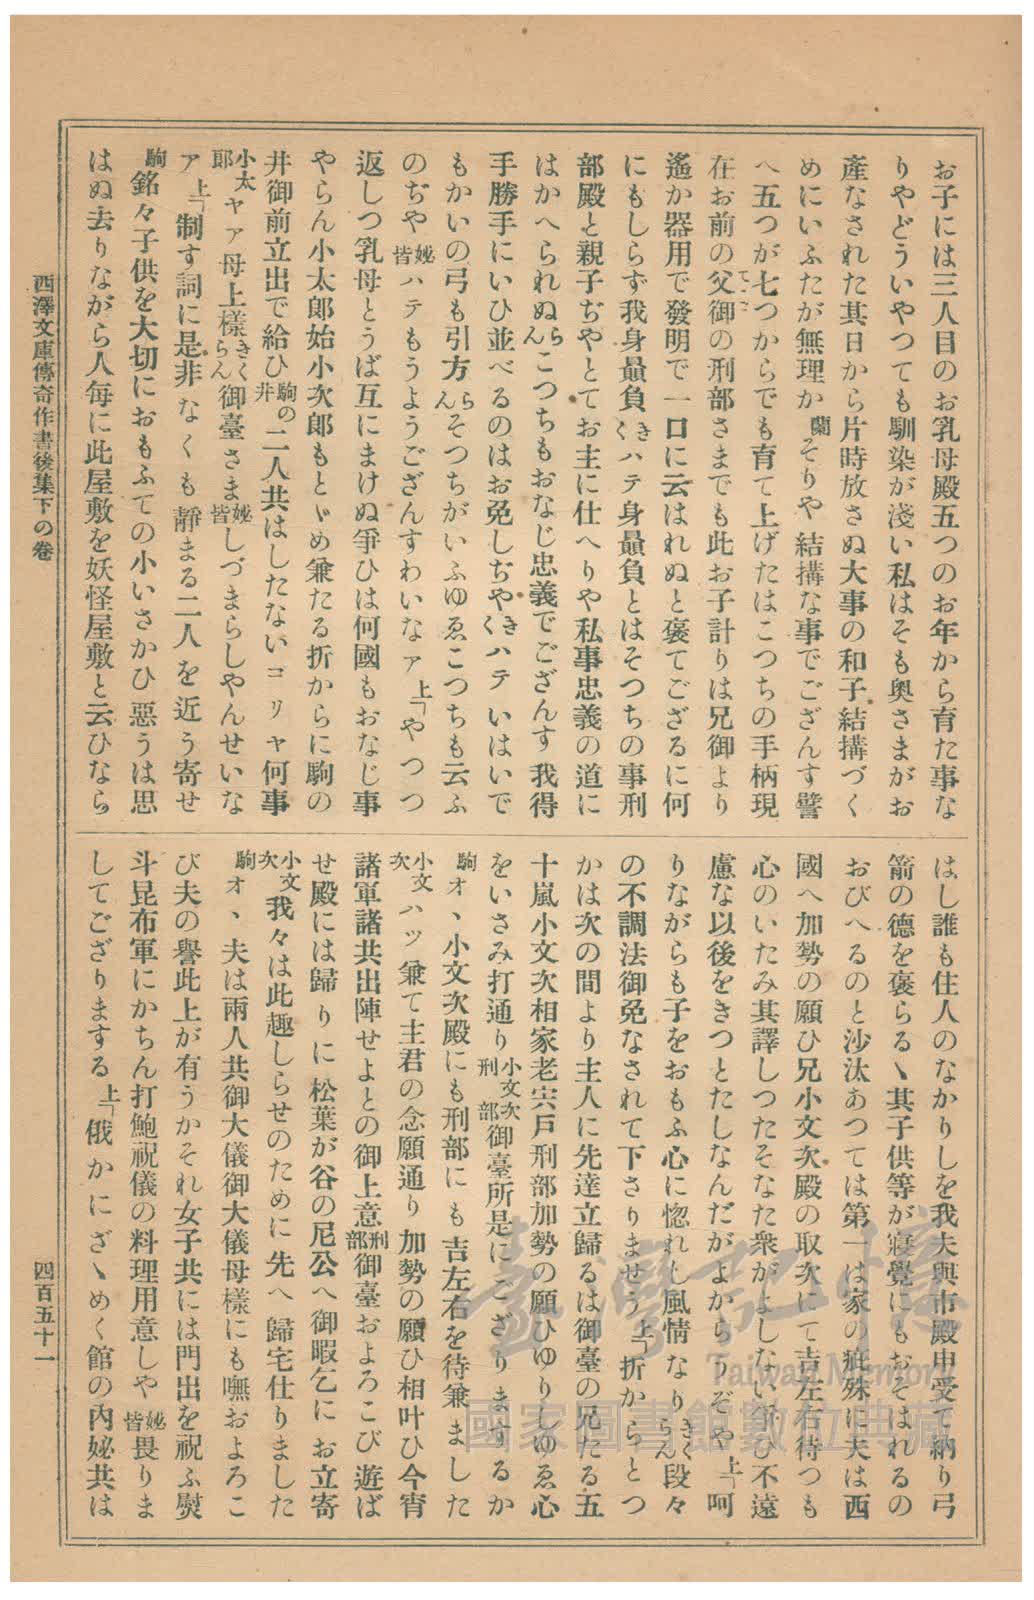 お子には三人目のお乳母殿五つのお年から育た事な
りやどういやつても馴染が淺い私はそも奧さまがお
產なされた其日から片時放さぬ大事の和子結搆づく
めにいふたが無理か蘭そりや結搆な事でござんす譬
へ五つが七つからでも育て上げたはこつちの手柄現
在お前の父御の刑部さまでも此お子計りは兄御より
遙か器用で發明で一口に云はれぬと褒てござるに何
にもしらず我身贔負きくハテ身贔負とはそつちの事刑
部殿と親子ぢやとてお主に仕へりや私事忠義の道に
はかへられぬらんこつちもおなじ忠義でござんす我得
手勝手にいひ並べるのはお免しぢやきくハテいはいで
もかいの弓も引方らんそつちがいふゆゑこつちも云ふ
のぢや妼皆ハテもうようござんすわいなァ上「やつつ
返しつ乳母とうば互にまけぬ爭ひは何國もおなじ事
やらん小太郎始小次郎もとゞめ兼たる折からに駒の
井御前立出で給ひ駒の井二人共はしたないコリャ何事
小太郎ヤァ母上樣きくらん御臺さま妼皆しづまらしやんせいな
ア上「制す詞に是非なくも靜まる二人を近う寄せ
駒銘々子供を大切におもふての小いさかひ惡うは思
はぬ去りながら人每に此屋敷を妖怪屋敷と云ひなら
はし誰も住人のなかりしを我夫與市殿申受て納り弓
箭の德を褒らるゝ其子供等が寢覺にもおそはれるの
おびへるのと沙汰あつては第一は家の疵殊に夫は西
國へ加勢の願ひ兄小文次殿の取次にて吉左右待つも
心のいたみ其譯しつたそなた衆がよしない爭ひ不遠
慮な以後をきつとたしなんだがよからうぞや上「呵
りながらも子をおもふ心に惚れし風情なりきくらん段々
の不調法御免なされて下さりませう上「折からとつ
かは次の間より主人に先達立歸るは御臺の兄たる五
十嵐小文次相家老宍戶刑部加勢の願ひゆりしゆゑ心
をいさみ打通り小文次刑部御臺所是にござりますか
駒オヽ小文次殿にも刑部にも吉左右を待兼ました
小文次ハッ兼て主君の念願通り加勢の願ひ相叶ひ今宵
諸軍諸共出陣せよとの御上意刑部御臺およろこび遊ば
せ殿には歸りに松葉が谷の尼公へ御暇乞にお立寄
小文次我々は此趣しらせのために先へ歸宅仕りました
駒オヽ夫は兩人共御大儀御大儀母樣にも嘸およろこ
び夫の譽此上が有うかそれ女子共には門出を祝ふ熨
斗昆布軍にかちん打鮑祝儀の料理用意しや妼皆畏りま
してござりまする上「俄かにざゝめく館の內妼共は
西澤文庫傳奇作書後集下の卷
四百五十一
臺灣記憶
Taiwan Memory
國家圖書館數位典藏